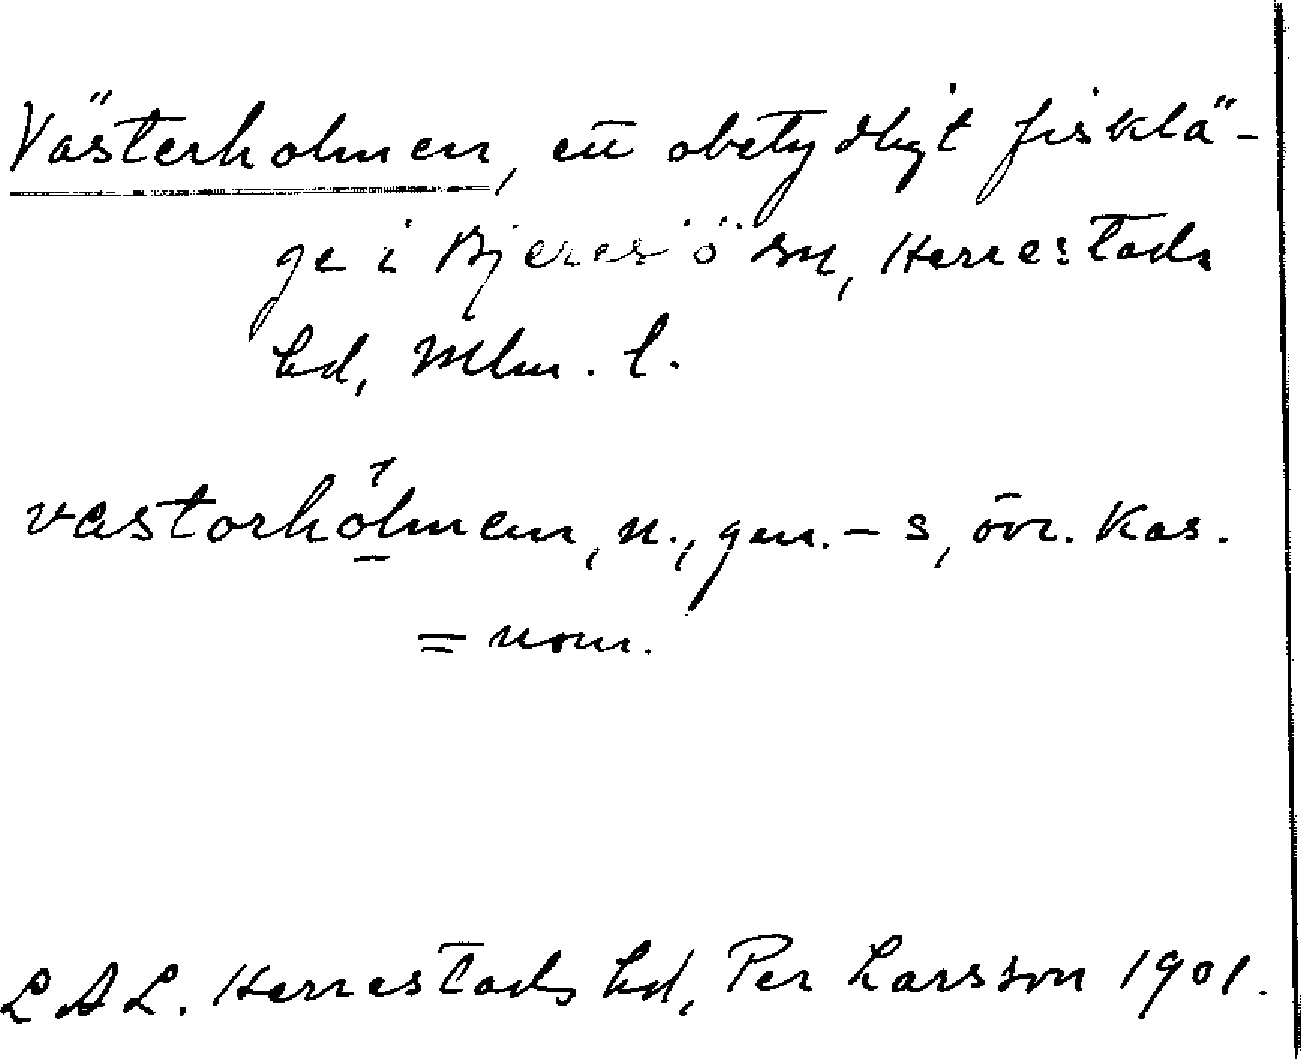 Västerholmen, ett obetydligt fisklä-
ge i Bjeresjö sn, Herrestads
hd, Mlm. l.
vastorhölmen, n., gen. - s, övr. Kas.
= nom.
LAL. Herrestads hd, Per Larsson 1901.